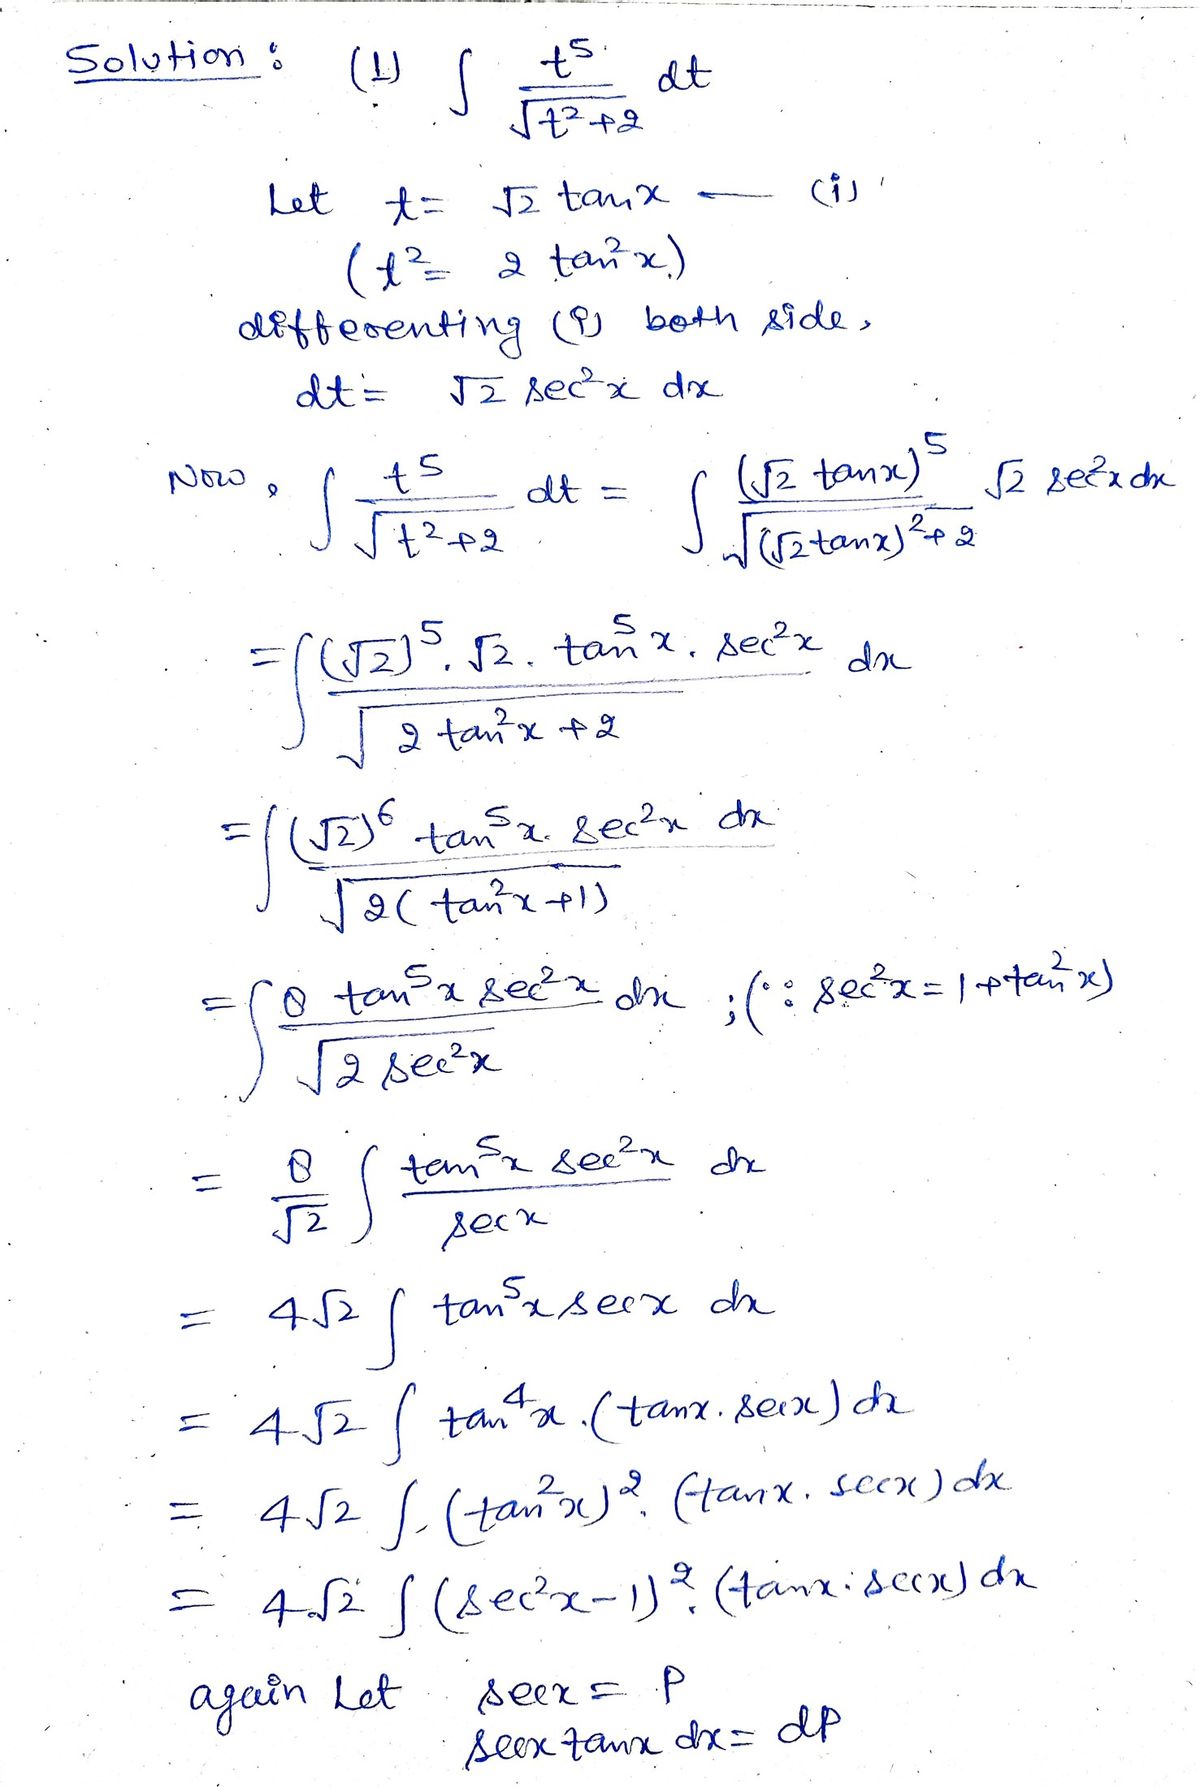 Solution : (1) ∫ t^5/√(t^2+2) dt
Let t = √2 tanx — (i)
(t^2 = 2 tan^2x)
differenting (i) both side,
dt = √2 sec^2x dx
Now, ∫ t^5/√(t^2+2) dt = ∫ (√2 tanx)^5/√((√2 tanx)^2+2) √2 sec^2x dx
= ∫ (√2)^5 . √2 . tan^5x . sec^2x/√(2 tan^2x + 2) dx
= ∫ (√2)^6 tan^5x . sec^2x dx/√(2(tan^2x+1))
= ∫ 8 tan^5x sec^2x/√(2 sec^2x) dx ; (∵ sec^2x = 1+tan^2x)
= 8/√2 ∫ tan^5x sec^2x/secx dx
= 4√2 ∫ tan^5x secx dx
= 4√2 ∫ tan^4x . (tanx . secx) dx
= 4√2 ∫ (tan^2x)^2 . (tanx . secx) dx
= 4√2 ∫ (sec^2x-1)^2 . (tanx . secx) dx
again Let secx = P
secx tanx dx = dP